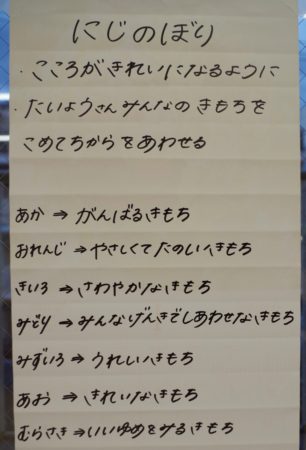 にじのぼり
・こころがきれいになるように
・たいようさんみんなのきもちを
こめてちからをあわせる
あか⇒がんばるきもち
おれんじ⇒やさしくてたのしいきもち
きいろ⇒さわやかなきもち
みどり⇒みんなげんきでしあわせなきもち
みずいろ⇒うれしいきもち
あお⇒きれいなきもち
むらさき⇒いいゆめをみるきもち